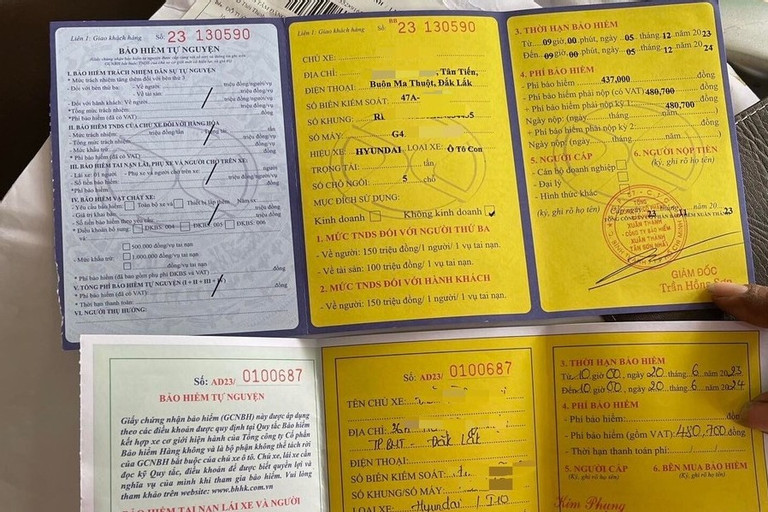 Liên 1: Giao khách hàng Số: 23 130590
BẢO HIỂM TỰ NGUYỆN
I. BẢO HIỂM TRÁCH NHIỆM DÂN SỰ TỰ NGUYỆN
* Mức trách nhiệm tăng thêm đối với hạng 3
- Đối với bên thứ ba: - Về người triệu đồng/người/vụ
- Về tài sản triệu đồng/vụ
- Đối với hành khách: Về người triệu đồng/người/vụ
* Tổng mức trách nhiệm triệu đồng/vụ
* Phí bảo hiểm (đã có VAT) đồng
II. BẢO HIỂM TNDS CỦA CHỦ XE ĐỐI VỚI HÀNG HÓA
- Mức trách nhiệm: triệu đồng/tấn Trọng tải: tấn
- Tổng mức trách nhiệm: triệu đồng/vụ
- Mức khấu trừ: triệu đồng/vụ
* Phí bảo hiểm (đã có VAT): đồng
III. BẢO HIỂM TAI NẠN LÁI, PHỤ XE VÀ NGƯỜI CHỞ TRÊN XE:
- Lái xe: 01 người - Phụ xe và người chở trên xe: người
- Số tiền bảo hiểm: triệu đồng/người/vụ
* Phí bảo hiểm: đồng
IV. BẢO HIỂM VẬT CHẤT XE
- Yêu cầu bảo hiểm: Toàn bộ xe Thiết bị lắp thêm
- Giá trị khai báo:
- Số tiền bảo hiểm theo yêu cầu
* Điều khoản bổ sung: ĐKBS: 004 ĐKBS: 005 ĐKBS: 006
500.000 đồng/vụ tai nạn
- Mức khấu trừ: 1.000.000 đồng/vụ tai nạn
đồng/vụ tai nạn
* Phí bảo hiểm (đã bao gồm phụ phí ĐKBS và VAT) đồng
V. TỔNG PHÍ BẢO HIỂM TỰ NGUYỆN (I + II + III + IV)
* Phí bảo hiểm (đã có VAT): đồng
* Thời hạn thanh toán:
VI. NGƯỜI THỤ HƯỞNG:
Liên 1: Giao khách hàng Số: BB 23 130590
CHỦ XE:
ĐỊA CHỈ: , Tân Tiến,
ĐIỆN THOẠI: Buôn Ma Thuột, Đắk Lắk
SỐ BIỂN KIỂM SOÁT: 47A-
SỐ KHUNG:
SỐ MÁY: G4
HIỆU XE: HYUNDAI LOẠI XE: Ô Tô Con
TRỌNG TẢI: tấn
SỐ CHỖ NGỒI: 5 chỗ
MỤC ĐÍCH SỬ DỤNG:
Kinh doanh Không kinh doanh
1. MỨC TNDS ĐỐI VỚI NGƯỜI THỨ BA
- Về người: 150 triệu đồng/1 người/ 1 vụ tai nạn.
- Về tài sản: 100 triệu đồng/ 1 vụ tai nạn.
2. MỨC TNDS ĐỐI VỚI HÀNH KHÁCH
- Về người: 150 triệu đồng/1 người/ 1 vụ tai nạn.
3. THỜI HẠN BẢO HIỂM
Từ 09 giờ, 00 phút, ngày 05 tháng 12 năm 2023
Đến 09 giờ, 00 phút, ngày 05 tháng 12 năm 2024
4. PHÍ BẢO HIỂM
- Phí bảo hiểm: 437,000 đồng
- Phí bảo hiểm phải nộp (có VAT) 480,700 đồng
+ Phí bảo hiểm phải nộp kỳ 1: 480,700 đồng
Ngày nộp: (ngày tháng năm )
+ Phí bảo hiểm phải nộp kỳ 2: đồng
Ngày nộp: (ngày tháng năm )
5. NGƯỜI CẤP 6. NGƯỜI NỘP TIỀN
- Cán bộ doanh nghiệp (ký, ghi rõ họ tên)
- Đại lý
- Hình thức khác
(ký, ghi rõ họ tên) 23 11 2023
XUÂN THÀNH
CÔNG TY BẢO HIỂM
XUÂN THÀNH
TÂN SƠN NHẤT
GIÁM ĐỐC
Trần Hồng Sơn
Số: AD23/ 0100687
BẢO HIỂM TỰ NGUYỆN
Giấy chứng nhận bảo hiểm (GCNBH) này được áp dụng
theo các điều khoản được quy định tại Quy tắc Bảo hiểm
kết hợp xe cơ giới hiện hành của Tổng công ty Cổ phần
Bảo hiểm Hàng không và là bộ phận không thể tách rời
của GCNBH bắt buộc của chủ xe ô tô. Chủ xe, lái xe cần
đọc kỹ Quy tắc, điều khoản để được biết quyền lợi và
nghĩa vụ của mình khi tham gia bảo hiểm. Vui lòng
tham khảo trên website: www.bhhk.com.vn
BẢO HIỂM TAI NẠN LÁI XE VÀ NGƯỜI
Số: AD23/ 0100687
TÊN CHỦ XE:
ĐỊA CHỈ:
TP BMT - Đăk Lăk
ĐIỆN THOẠI:
SỐ BIỂN KIỂM SOÁT:
SỐ KHUNG/SỐ MÁY:
LOẠI XE: Hyundai / I10
3. THỜI HẠN BẢO HIỂM
Từ 10 giờ 00, ngày 20 tháng 6 năm 2023
Đến 10 giờ 00, ngày 20 tháng 6 năm 2024
4. PHÍ BẢO HIỂM
- Phí bảo hiểm: đồng
- Phí bảo hiểm (gồm VAT): 480,700 đồng
- Thời hạn thanh toán phí: / /
5. NGƯỜI CẤP 6. BÊN MUA BẢO HIỂM
(Ký, ghi rõ họ tên) (Ký, ghi rõ họ tên)
Kim Phụng